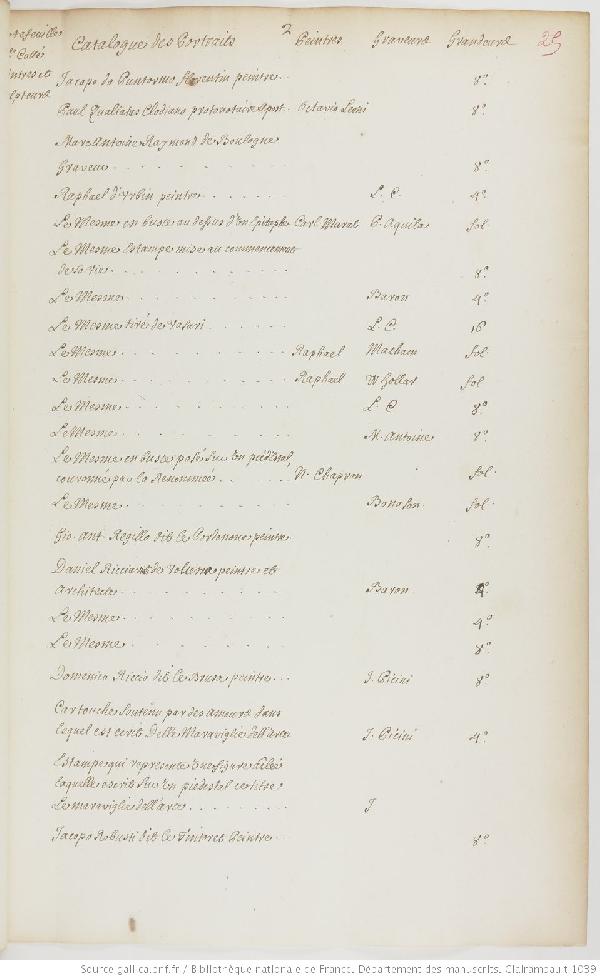 2
Catalogue des Portraits Peintres Graveurs Grandeurs 25
Jacopo do Puntormo florentin peintre 8º
Gael Qualiatus Clodianus protonotaire Apost. Octavio Leoni 8º
Marc Antoine Raymond de Boulogne
Graveur 8º
Raphael d'Urbin peintre L. C. 4º
Le Mesme en buste au dessus d'un Epitaphe Carl Marat P. Aquila fol
Le Mesme Estampe mise au commencement
de sa Vie 8º
Le Mesme Baron 4º
Le Mesme tiré de Vasari L. C. 16
Le Mesme Raphael fol
Le Mesme Raphael W Hollar fol
Le Mesme L. C 8º
Le Mesme M. Antoine 8º
Le Mesme en buste posé sur un piédestal,
couronné par la Renommée N. Chapron fol
Le Mesme fol
Gio. Ant. Regillo dit le Pordenone peintre 8º
Daniel Ricciarel de Volterre peintre et
Architecte Baron 4º
Le Mesme 4º
Le Mesme 8º
Domenico Riccio dit le Brusa peintre J. Picini 8º
Cartouche soutenu par des amours dans
lequel est ecrit Delle Maraviglie dell'arte J. Picini 4º
Estampe qui represente une figure ailée
laquelle ecrit sur un piedestal ce titre
Le maraviglie dell'arte J
Jacopo Robusti dit le Tintoret Peintre 8º
Source gallica.bnf.fr / Bibliothèque nationale de France. Département des manuscrits. Clairambault 1039